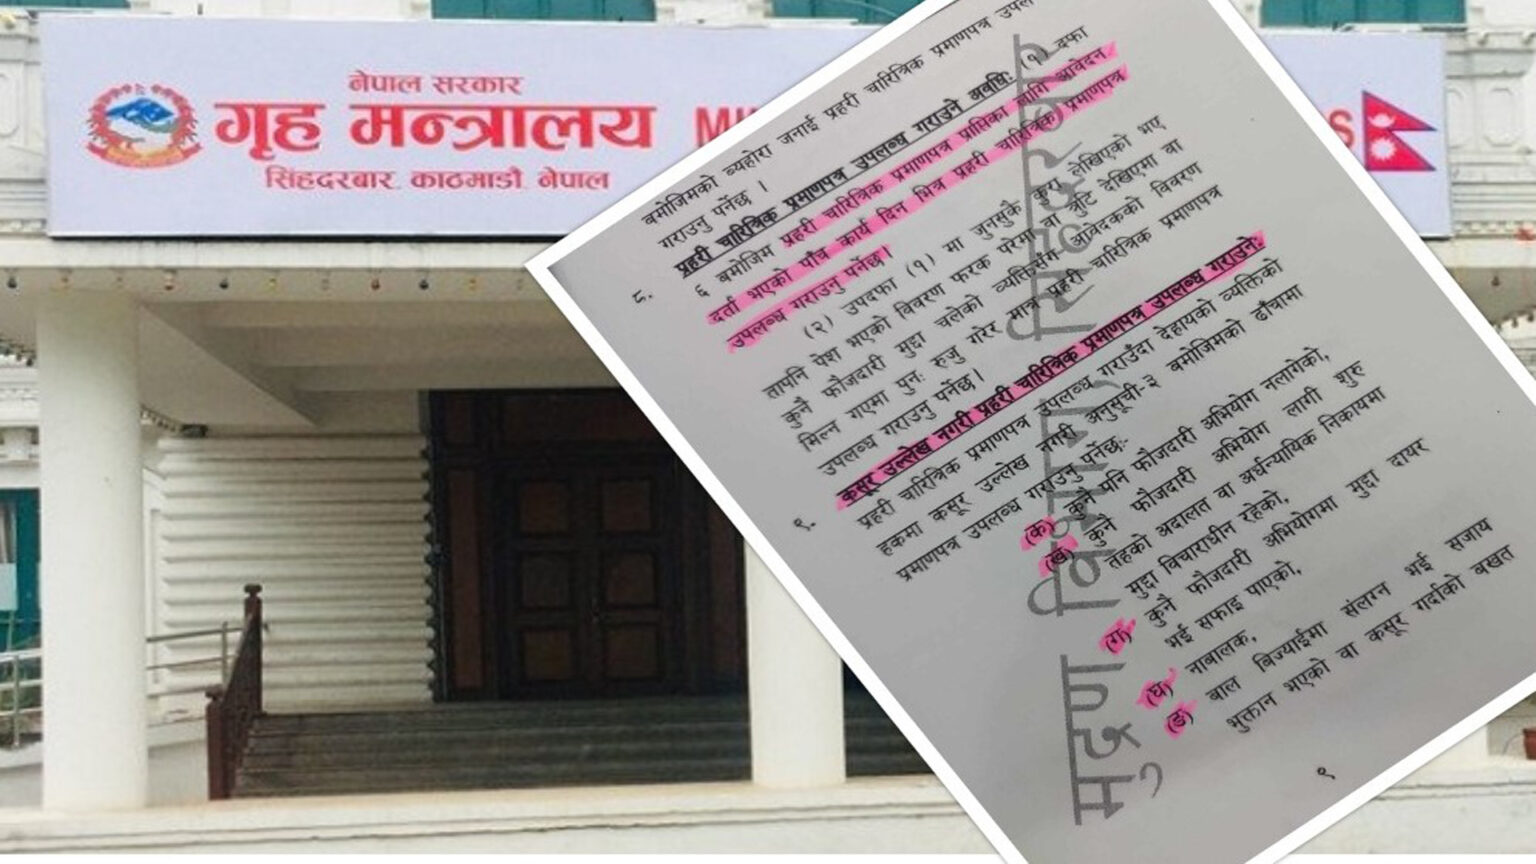 नेपाल सरकार
गृह मन्त्रालय
सिंहदरबार, काठमाडौं, नेपाल
MI
S
बमोजिमको व्यहोरा जनाई प्रहरी चारित्रिक प्रमाणपत्र उपल
गराउनु पर्नेछ ।
८. प्रहरी चारित्रिक प्रमाणपत्र उपलब्ध गराउने अवधिः (१) दफा
६ बमोजिम प्रहरी चारित्रिक प्रमाणपत्र प्राप्तिका लागि आवेदन
दर्ता भएको पाँच कार्य दिन भित्र प्रहरी चारित्रिक प्रमाणपत्र
उपलब्ध गराउनु पर्नेछ।
(२) उपदफा (१) मा जुनसुकै कुरा लेखिएको भए
तापनि पेश भएको विवरण फरक परेमा वा त्रुटि देखिएमा वा
कुनै फौजदारी मुद्दा चलेको व्यक्तिसँग आवेदकको विवरण
मिल्न गएमा पुनः रुजु गरेर मात्र प्रहरी चारित्रिक प्रमाणपत्र
उपलब्ध गराउनु पर्नेछ।
९. कसूर उल्लेख नगरी प्रहरी चारित्रिक प्रमाणपत्र उपलब्ध गराउने:
प्रहरी चारित्रिक प्रमाणपत्र उपलब्ध गराउँदा देहायको व्यक्तिको
हकमा कसूर उल्लेख नगरी अनुसूची-३ बमोजिमको ढाँचामा
प्रमाणपत्र उपलब्ध गराउनु पर्नेछ:-
(क) कुनै पनि फौजदारी अभियोग नलागेको,
(ख) कुनै फौजदारी अभियोग लागी शुरु
तहको अदालत वा अर्धन्यायिक निकायमा
मुद्दा विचाराधीन रहेको,
(ग) कुनै फौजदारी अभियोगमा मुद्दा दायर
भई सफाइ पाएको,
(घ) नाबालक,
(ङ) बाल बिज्याईमा संलग्न भई सजाय
भुक्तान भएको वा कसूर गर्दाको बखत
९
मुद्रण विभाग, सिंहदरबार